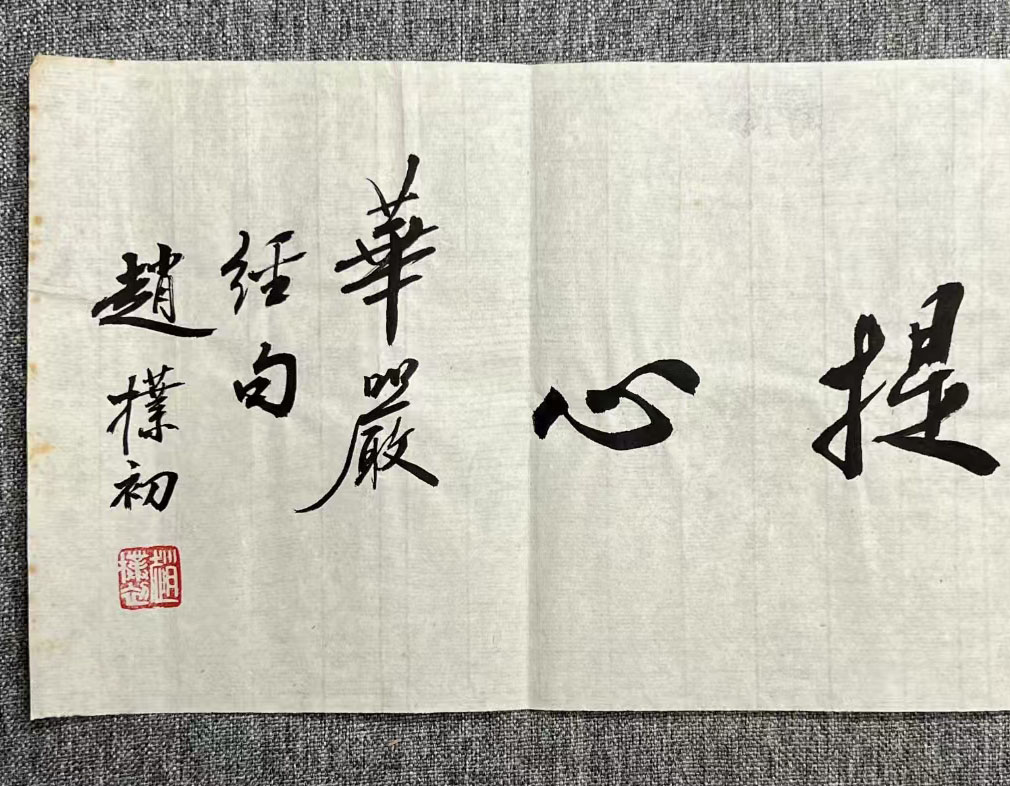 提心
華嚴
經句
趙樸初
趙樸初